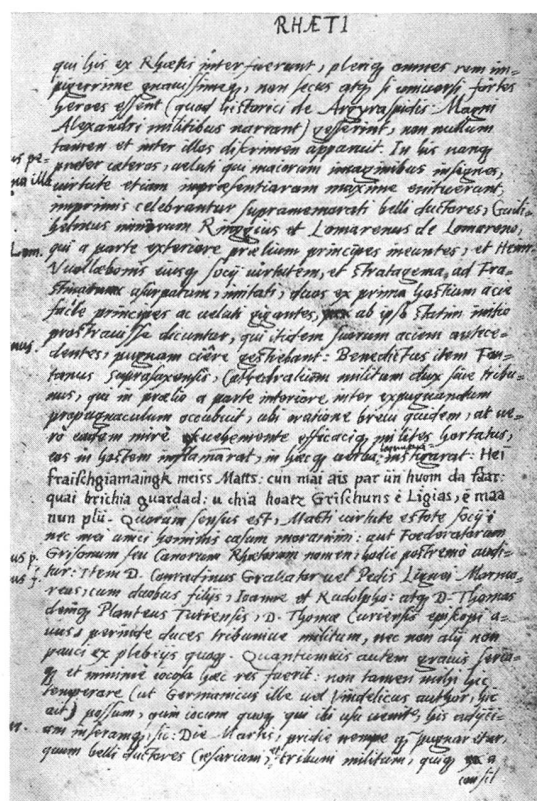 RHÆTI
qui his ex Rhætis interfuerant, pleriq omnes rem im-
pigerrime gnavissimeq, non secus atq si universi, fortes
heroes essent (quod historici de Argyraspidis: Magni
Alexandri militibus narrant) gesserint, non nullum
tamen et inter illos discrimen apparuit. In his nanq
preter cæteros, veluti qui maiorum imaginibus insignes,
virtute etiam inpræsentiarum maxime enituerunt,
imprimis celebrantur supramemorati belli ductores, Guili-
helmus Ringgius et Lomarenus de Lomareno,
qui a parte exteriore prælium principes ineuntes, et Henr.
eiusq socij virtutem, et stratagema, ad Fra-
asurpatum, imitati, duos ex prima hostium acie
facile principes ac veluti gigantes, ab ipso statim initio
prostravisse dicuntur, qui itidem suorum aciem antece-
dentes, pugnam ciere gestiebant: Benedictus item Fon-
tanus Suprasaxensis, Cathedralium militum dux sive tribu-
nus, qui in prælio a parte interiore inter expugnandum
propugnaculum occubuit, ubi oratione brevi quidem, at ve-
rò eadem mirè vehemente efficaciq, milites hortatus,
eos in hostem inflammarat, in hæcq verba instigarat: Hei
fraischgiamaingk meiss Matts: cun mai ais par ün huom da faar:
quai brichia guardad: u chia hoatz Grischuns è Ligias, è maa
nun plü. Quorum sensus est, Macti virtute estote socij i
nec mei unici hominis casum moramini: aut Foederatorum
Grisonum seu Canorum Rhætorum nomen, hodie postremo audi-
tur: Item D. Conradinus vel Pedis Lignei Marmo-
reus, cum duobus filijs, Ioanne et Rudolpho: atq D. Thomas
deniq Planteus D. Thomæ Curiensis episcopi a-
vus, perinde duces tribunive militum, nec non alij non
pauci ex plebeijs quoq. Quantumvis autem gravis seria-
q et minimè iocosa hæc res fuerit: non tamen mihi hic
temperare (ut Germanicus ille vel Vindelicus author, hic
ait) possum, quin iocum quoq qui ibi usu venit, his
am inseramq, sic: Die Martis, pridie nempe q pugnaretur,
quum belli ductores Cæsariani, tribuni militum, quiq a
consil